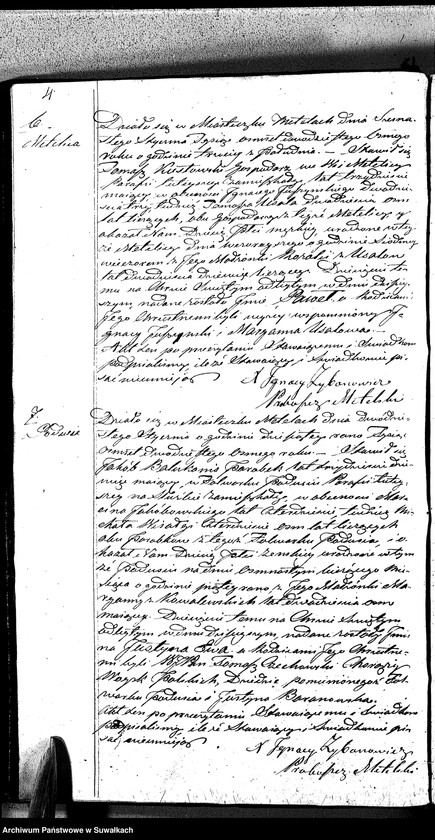 4
6.
Metelica
Działo się w Miasteczku Metelach dnia Szesna-
stego Stycznia Tysiąc ośmset dwudziestego ósmego
roku o godzinie trzeciej z południa. — Stawił się
Tomasz Gospodarz we Wsi Metelicy
Parafii tuteyszej zamieszkały, lat trzydzieści
maiący, w obecności Ignacego
trzy, tudzież Tomasza Usala dwadzieścia ośm
lat liczących, obu Gospodarzy z teyże Metelicy y
okazał Nam Dziecię płci męzkiey, urodzone w tey-
że Metelicy dnia wczorayszego o godzinie siódmey
wieczorem z Jego Małżonki z Usalow
lat dwadzieścia dziewięć liczącey. Dziecięciu te-
mu na Chrzcie Świętym odbytym w dniu dzisiey-
szym, nadane zostało Imie Paweł, a Rodzicami
Jego Chrzestnemi byli wyżey wspomniony Ig-
nacy i Maryanna Usalowa.
Akt ten po przeczytaniu Stawaiącemu i Świadkom
podpisaliśmy, ile że Stawaiący i Świadkowie pi-
sać nieumieią
X Ignacy Zybanowicz
Proboszcz Metelski
7.
Podusia
Działo się w Miasteczku Metelach dnia dwudzie-
stego Stycznia o godzinie dziesiątey rano Tysiąc
ośmset dwudziestego ósmego roku. — Stawił się
Jakób Parobek lat trzydzieści dzie-
więć maiący, w Folwarku Podusia Parafii tutey-
szey na Służbie zamieszkały, w obecności Mar-
cina Jakubowskiego lat czterdzieści, tudzież Mi-
chała czterdzieści ośm lat liczących
obu Parobków z tegoż Folwarku Podusia, i o-
kazał Nam Dziecię płci żenskiey, urodzone w tym-
że Podusia na dniu ośmnastym bieżącego Mie-
siąca o godzinie piątey rano, z Jego Małżonki Ma-
ryanny z Kowalewskich lat dwadzieścia ośm
maiącey. Dziecięciu temu na Chrzcie Świętym
odbytym w dniu dzisieyszym, nadane zostały Imio-
na Justyna Ewa, a Rodzicami Jego Chrzestne-
mi byli Tomasz Czechowski Chorąży
Woysk Polskich, Dziedzic pomienionego Fol-
warku Podusia i Justyna Baranowska.
Akt ten po przeczytaniu Stawaiącemu i Świadkom
podpisaliśmy, ile że Stawaiący i Świadkowie pi-
sać nieumieią
X Ignacy Zybanowicz
Proboszcz Metelski
Archiwum Państwowe w Suwałkach